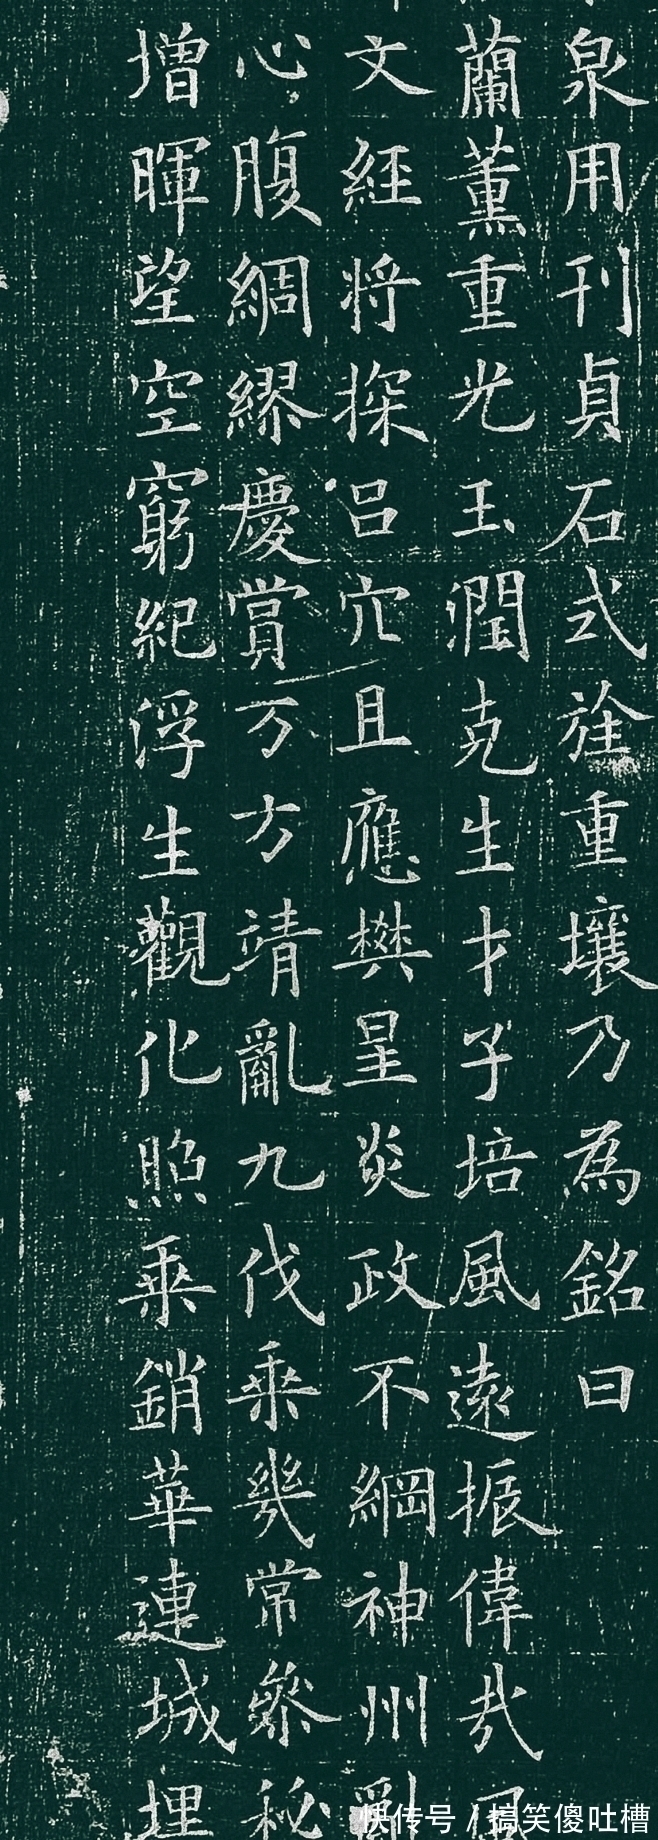 泉用刊貞石式旌重壤乃為銘曰
蘭薰重光玉潤克生才子培風遠振偉哉
文經将探呂穴且應樊星炎政不綱神州
心腹綢繆慶賞万方靖亂九伐乘幾常叅秘
增暉望空窮紀浮生觀化照乘銷華連城埋
快传号 / 搞笑傻吐槽